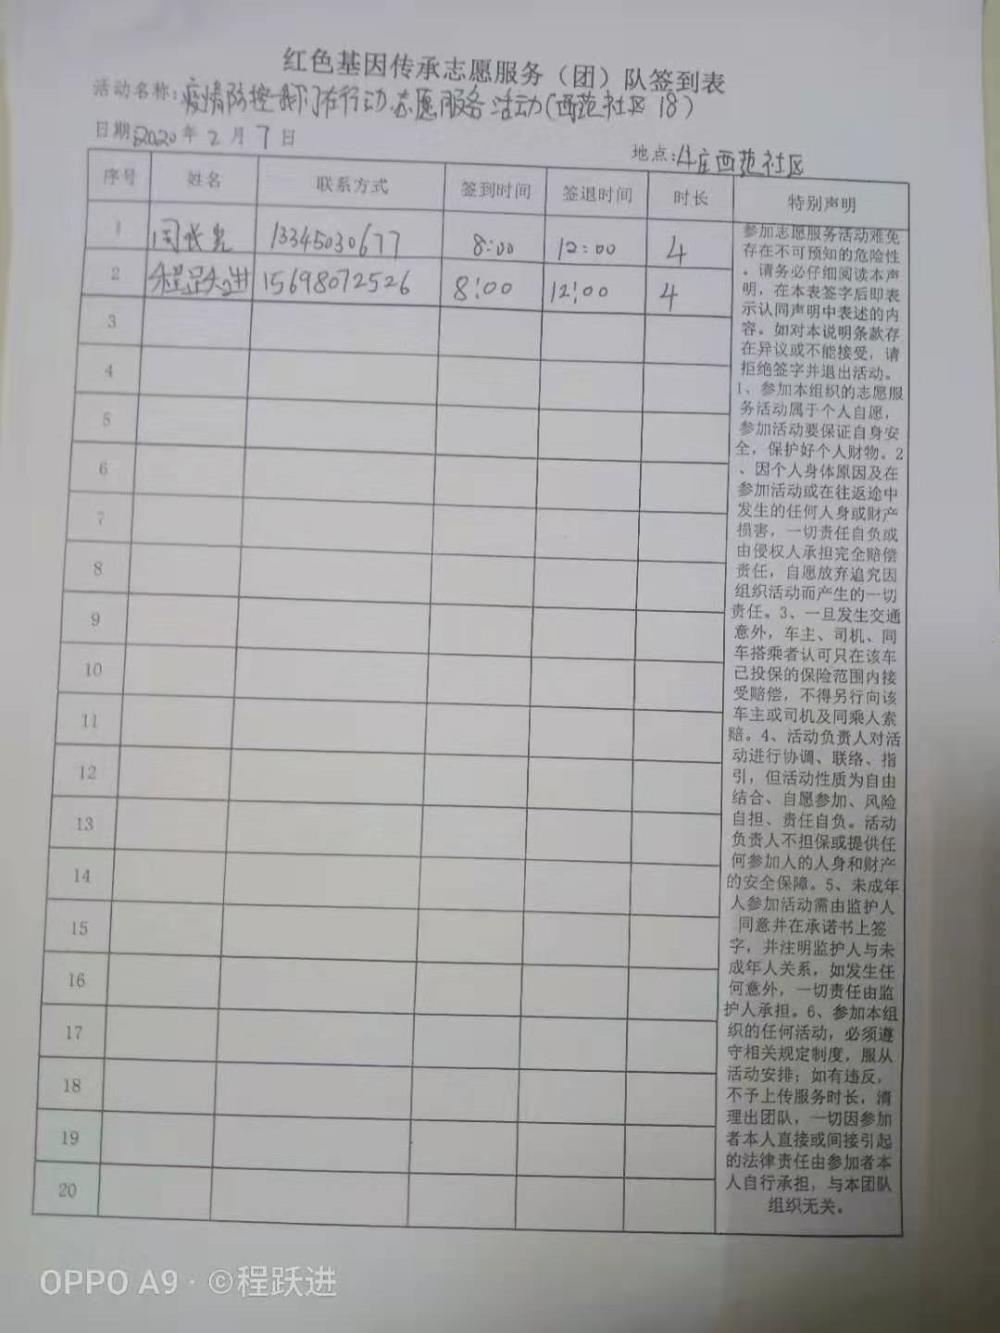 红色基因传承志愿服务（团）队签到表
活动名称：疫情防控我们在行动志愿服务活动（西范社区 18）
日期：2020年2月7日
地点：斗庄西范社区
序号 姓名 联系方式 签到时间 签退时间 时长 特别声明
1 周长先 13345030677 8:00 12:00 4
2 程跃进 15698072526 8:00 12:00 4
3
4
5
6
7
8
9
10
11
12
13
14
15
16
17
18
19
20
参加志愿服务活动难免
存在不可预知的危险性
。请务必仔细阅读本声
明，在本表签字后即表
示认同声明中表述的内
容。如对本说明条款存
在异议或不能接受，请
拒绝签字并退出活动。
1、参加本组织的志愿服
务活动属于个人自愿，
参加活动要保证自身安
全，保护好个人财物。2
、因个人身体原因及在
参加活动或在往返途中
发生的任何人身或财产
损害，一切责任自负或
由侵权人承担完全赔偿
责任，自愿放弃追究因
组织活动而产生的一切
责任。3、一旦发生交通
意外，车主、司机、同
车搭乘者认可只在该车
已投保的保险范围内接
受赔偿，不得另行向该
车主或司机及同乘人索
赔。4、活动负责人对活
动进行协调、联络、指
引，但活动性质为自由
结合、自愿参加、风险
自担、责任自负。活动
负责人不担保或提供任
何参加人的人身和财产
的安全保障。5、未成年
人参加活动需由监护人
同意并在承诺书上签
字，并注明监护人与未
成年人关系，如发生任
何意外，一切责任由监
护人承担。6、参加本组
织的任何活动，必须遵
守相关规定制度，服从
活动安排；如有违反，
不予上传服务时长，清
理出团队，一切因参加
者本人直接或间接引起
的法律责任由参加者本
人自行承担，与本团队
组织无关。
OPPO A9 · ©程跃进